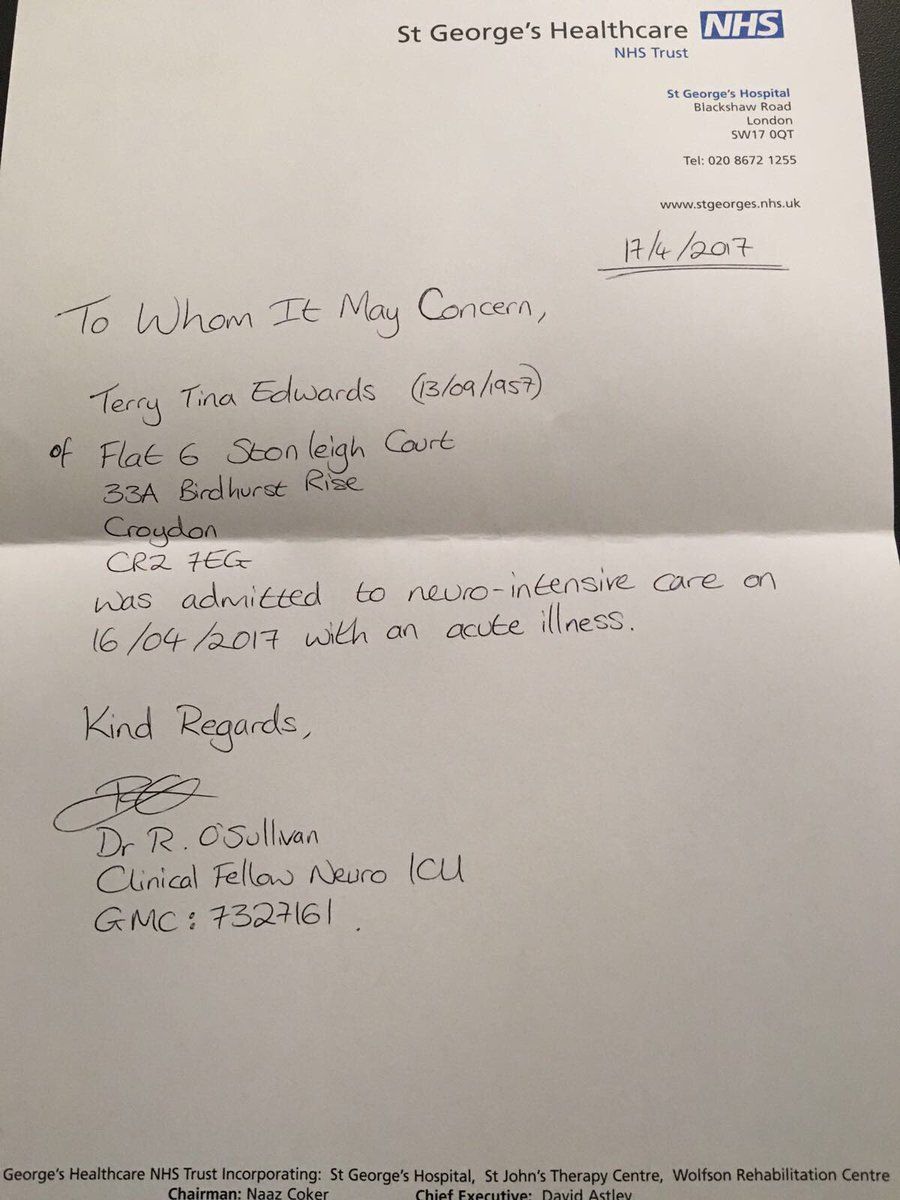 St George's Healthcare NHS
NHS Trust
St George's Hospital
Blackshaw Road
London
SW17 0QT
Tel: 020 8672 1255
www.stgeorges.nhs.uk
17/4/2017
To Whom It May Concern,
Terry Tina Edwards (13/09/1957)
of Flat 6 Stonleigh Court
33A Birdhurst Rise
Croydon
CR2 7EG
was admitted to neuro-intensive care on
16/04/2017 with an acute illness.
Kind Regards,
Dr R. O'Sullivan
Clinical Fellow Neuro ICU
GMC: 7327161.
George's Healthcare NHS Trust Incorporating: St George's Hospital, St John's Therapy Centre, Wolfson Rehabilitation Centre
Chairman: Naaz Coker Chief Executive: David Astley